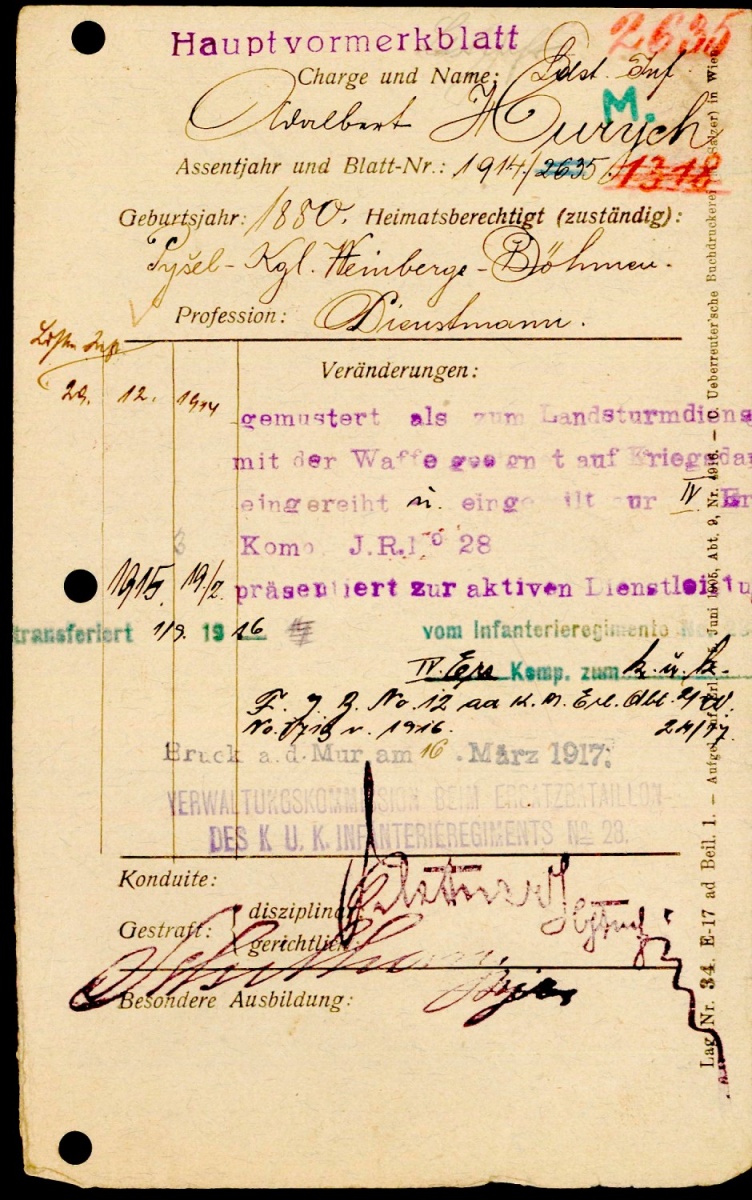 Hauptvormerkblatt
2635
Charge und Name: Ldst. Inf.
M.
Adalbert Hurych
Assentjahr und Blatt-Nr.: 1914/2635/1318
Geburtsjahr: 1880. Heimatsberechtigt (zuständig):
Pyšel - Kgl. Weinberge - Böhmen.
Profession: Dienstmann.
Veränderungen:
29. 12. 1914
gemustert als zum Landsturmdiens
mit der Waffe geeignet auf Kriegsda
eingereiht u. eingeteilt zur IV Er
Komp. J.R. No 28
1915 19/2 präsentiert zur aktiven Dienstleistu
transferiert 1/9. 1916 vom Infanterieregimente No. 28
IV. Ers Komp. zum k. u. k.
F. J. B. No. 12
v. 1916. 24/
Bruck a. d. Mur am 16. März 1917.
VERWALTUNGSKOMMISSION BEIM ERSATZBATAILLON
DES K U. K. INFANTERIEREGIMENTS No 28.
Konduite:
Gestraft: { disziplinar:
gerichtlich:
Besondere Ausbildung:
Lag Nr. 34. E-17 ad Beil. 1. — Juni 1905, Abt. 9, Nr. 1916. — Ueberreuter'sche Buchdruckerei (M. Salzer) in Wien